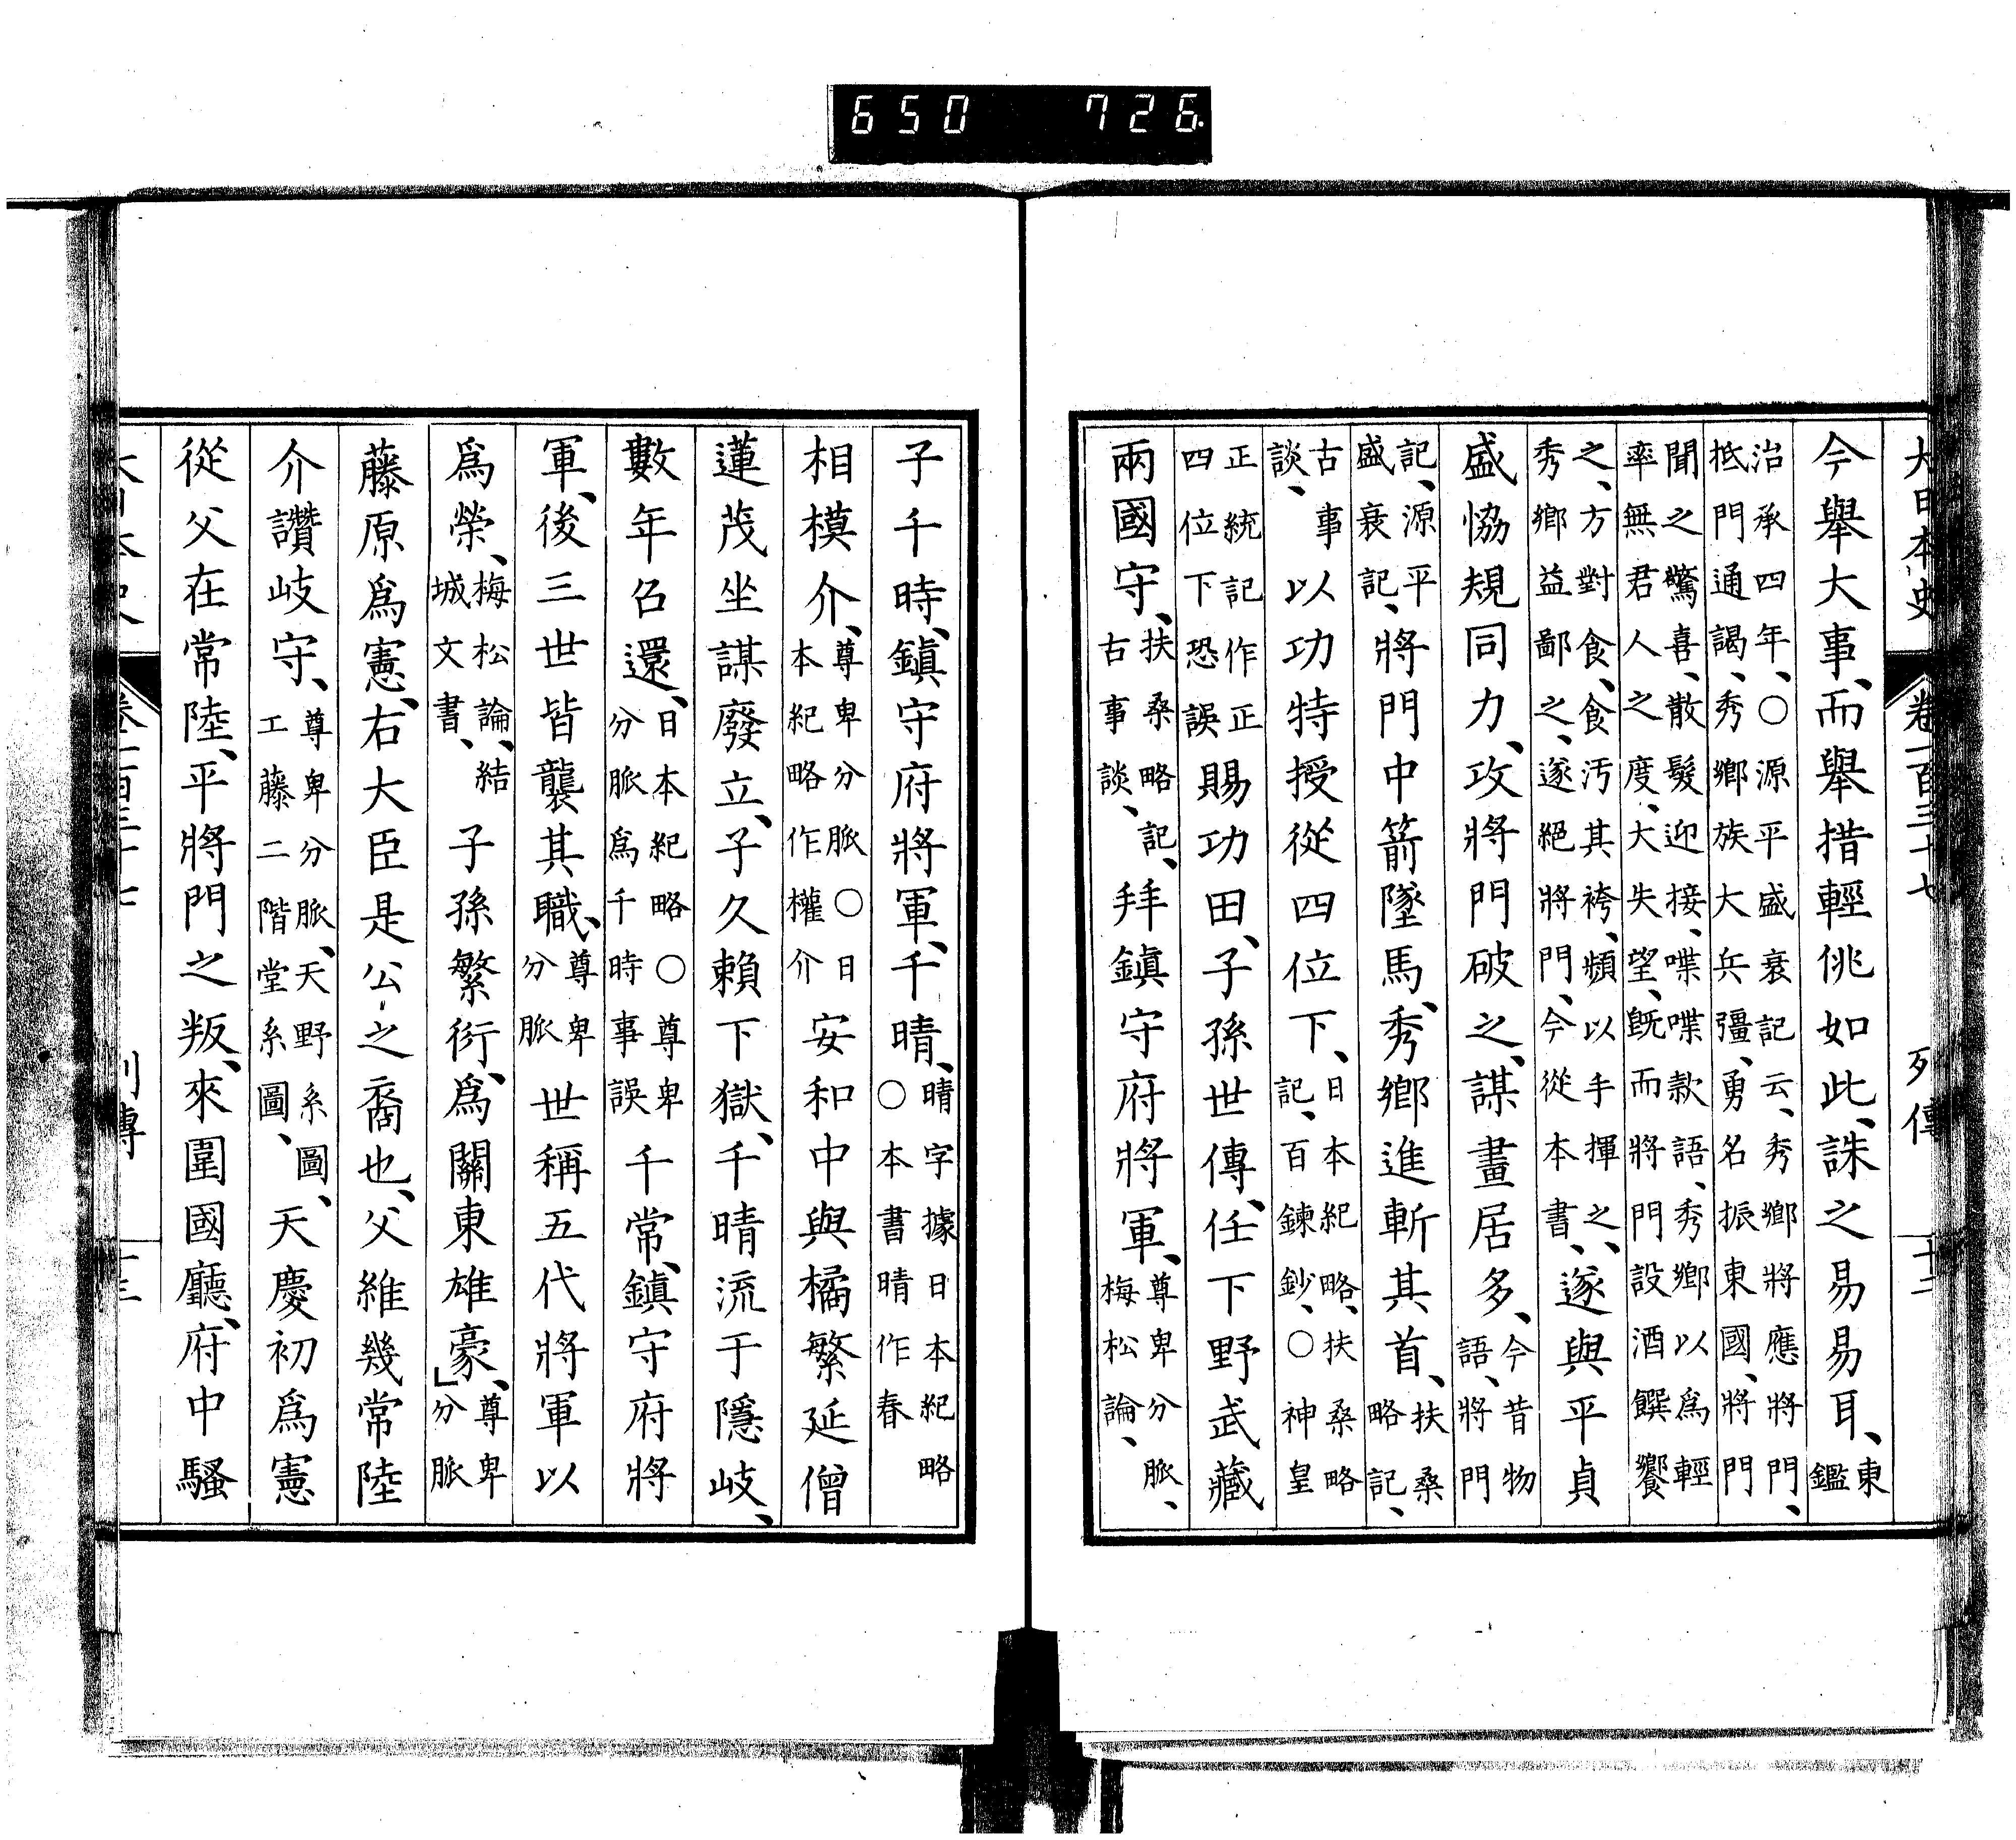 650 726
大日本史 卷一百三十七 列傳 十二
今舉大事、而舉措輕佻如此、誅之易易耳、東鑑
治承四年、〇源平盛衰記云、秀鄉將應將門、
抵門通謁、秀鄉族大兵彊、勇名振東國、將門
聞之驚喜、散髮迎接、喋喋款語、秀鄉以爲輕
率無君人之度、大失望、旣而將門設酒饌饗
之、方對食、食汚其袴、頻以手揮之、
秀鄉益鄙之、遂絕將門、今從本書、遂與平貞
盛恊規同力、攻將門破之、謀畫居多、今昔物語、將門
記、源平盛衰記、將門中箭墜馬、秀鄉進斬其首、扶桑略記、
古事談、以功特授從四位下、日本紀略、扶桑略記、百鍊鈔、〇神皇
正統記作正四位下恐誤賜功田、子孫世傳、任下野武藏
兩國守、扶桑略記、古事談、拜鎭守府將軍、尊卑分脈、梅松論、
子千時、鎭守府將軍、千晴、晴字據日本紀略〇本書晴作春
相模介、尊卑分脈〇日本紀略作權介安和中與橘繁延僧
蓮茂坐謀廢立、子久賴下獄、千晴流于隱岐、
數年召還、日本紀略〇尊卑分脈爲千時事誤千常、鎭守府將
軍、後三世皆襲其職、尊卑分脈世稱五代將軍以
爲榮、梅松論、結城文書、子孫繁衍、爲關東雄豪、」尊卑分脈
藤原爲憲、右大臣是公之裔也、父維幾常陸
介讚岐守、尊卑分脈、天野系圖、工藤二階堂系圖、天慶初爲憲
從父在常陸、平將門之叛、來圍國廳、府中騷